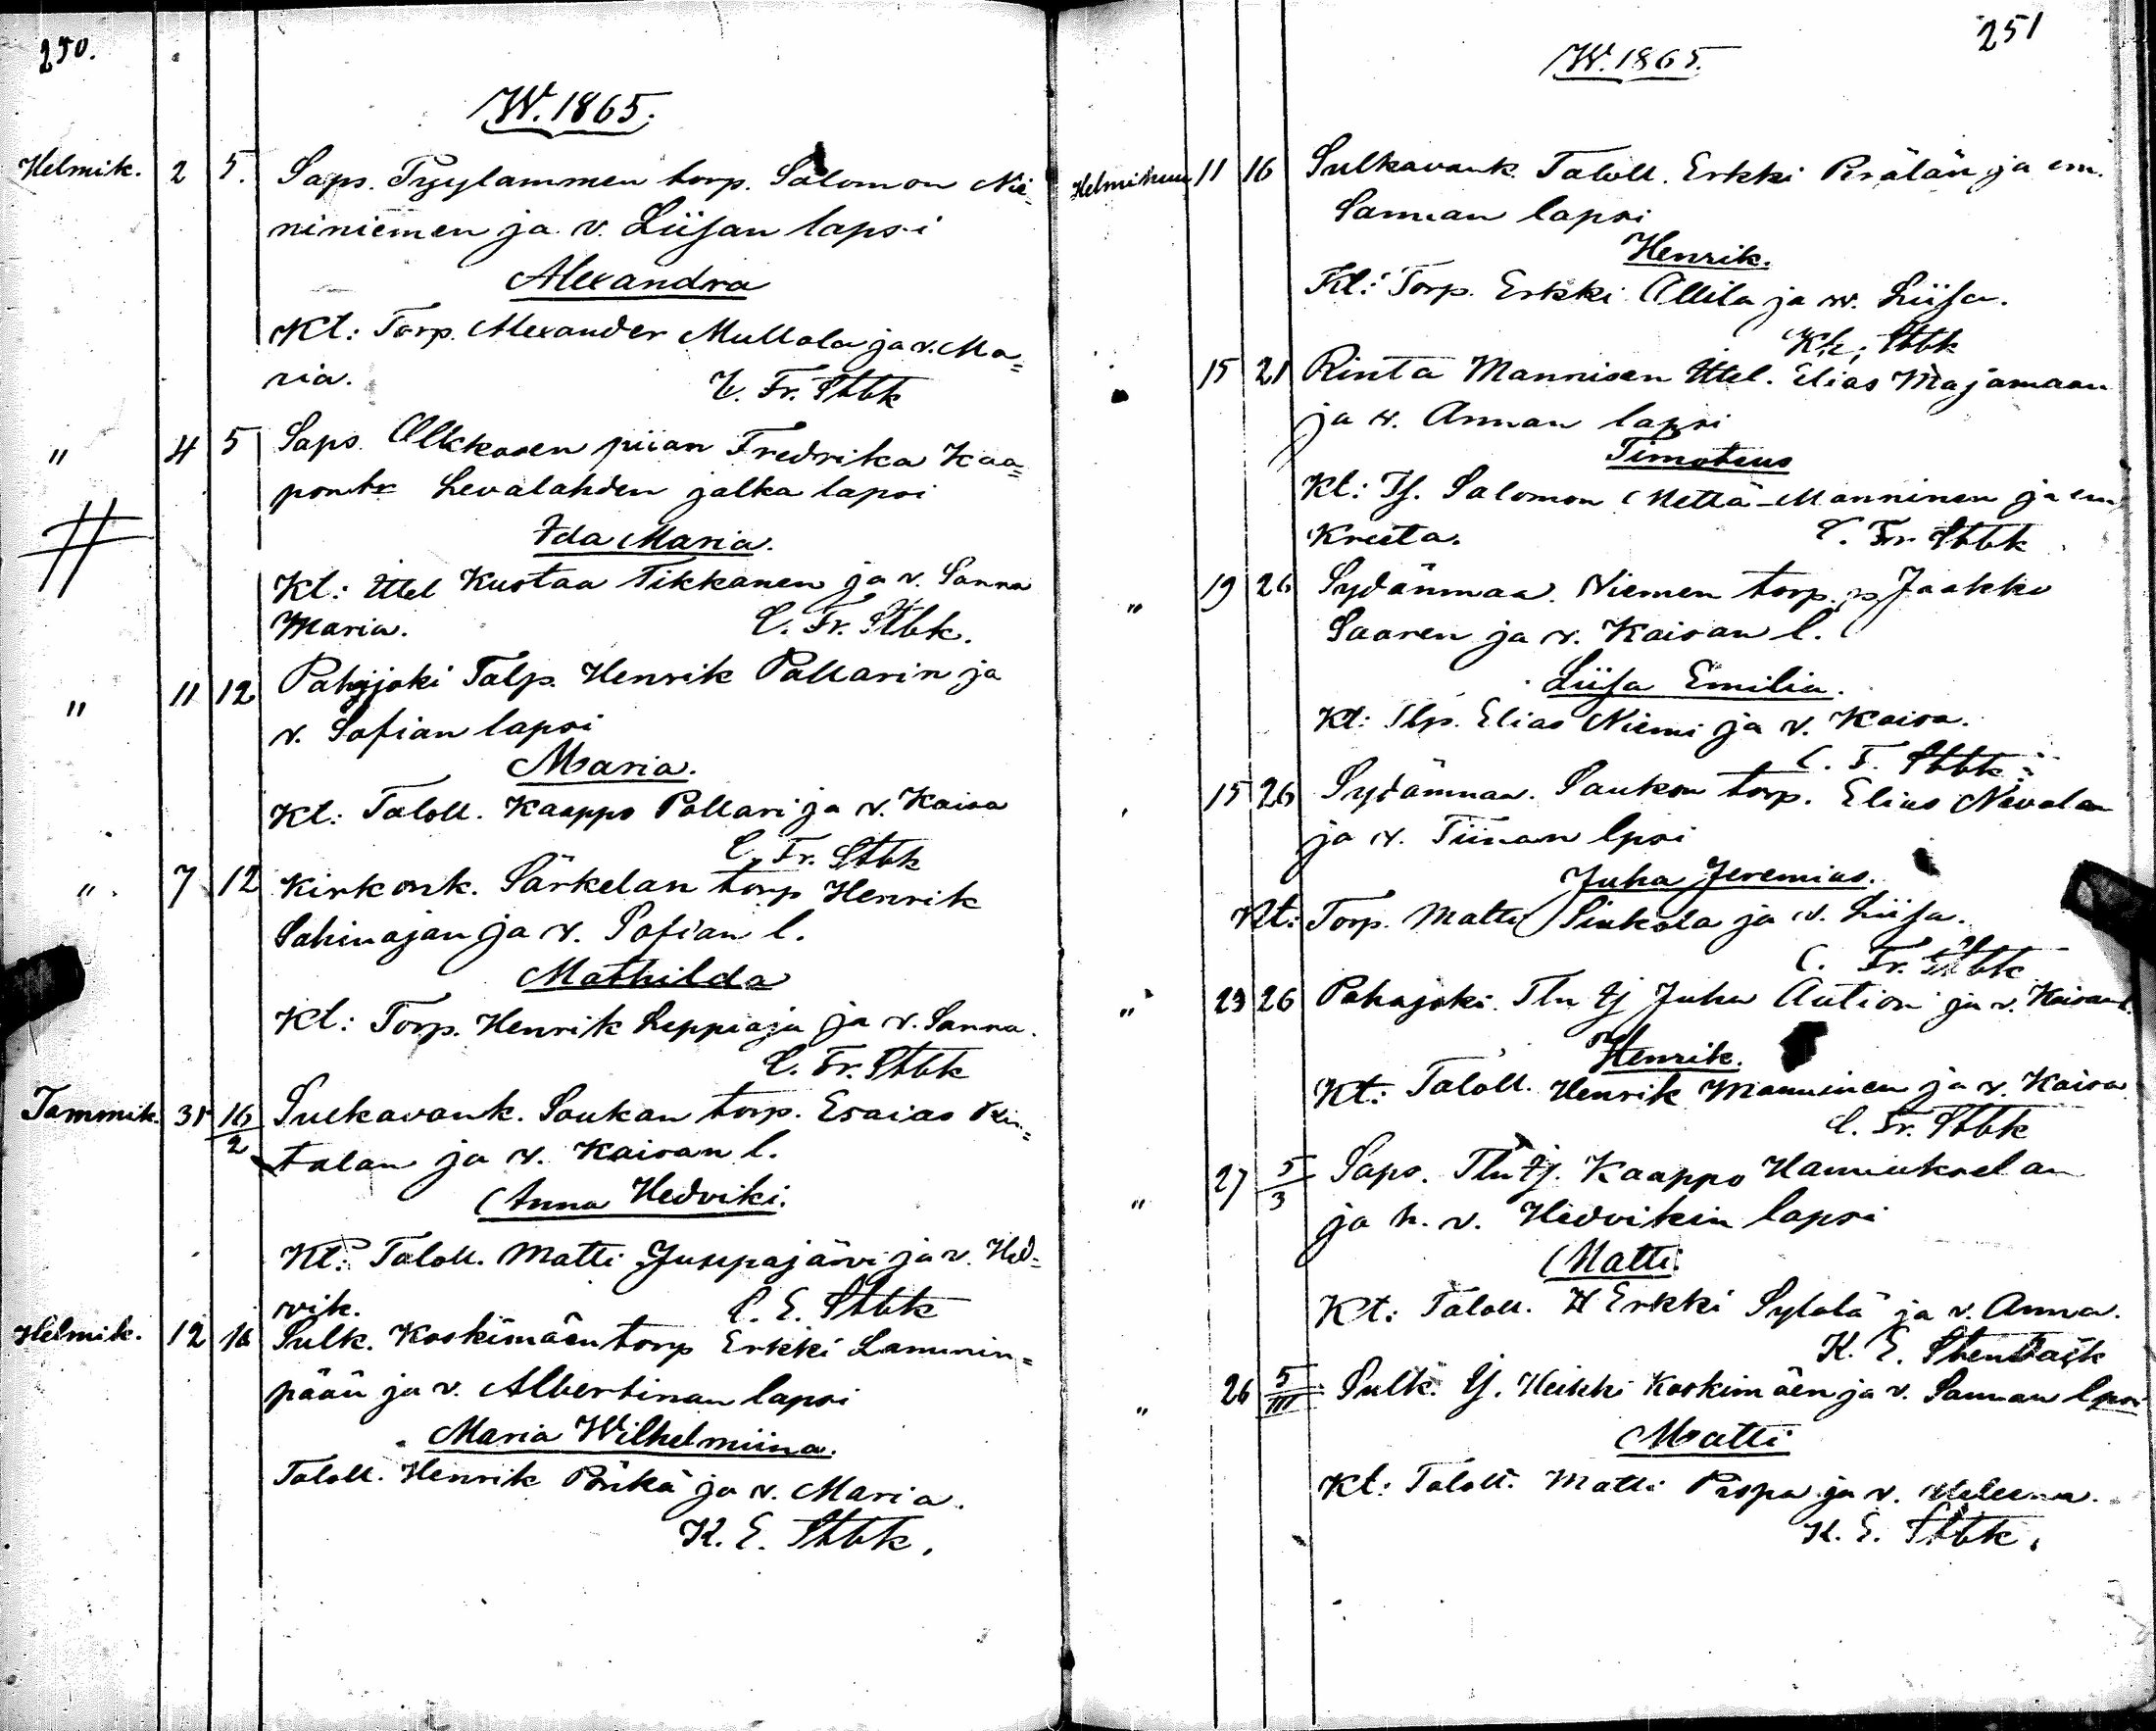 250.
W. 1865.
Helmik. 2 5. Saps. Pyylammen torp. Salomon Nii=
niniemen ja v. Liisan lapsi
Alexandra
Kt: Torp. Alexander Mullola ja v. Ma=
ria. C. Fr. Stbk
" 4 5 Saps. Alkkasen piian Fredrika Kaa=
pontr Levalahden jalka lapsi
Ida Maria.
Kt: Ittel Kustaa Tikkanen ja v. Sanna
Maria. C. Fr. Stbk.
" 11 12 Pahajoki Talp. Henrik Pollarin ja
v. Sofian lapsi
Maria.
Kt: Taloll. Kaappo Pollari ja v. Kaisa
C. Fr. Stbk
" 7 12 Kirkonk. Särkelan torp Henrik
Sahinajan ja v. Sofian l.
Mathilda
Kt: Torp. Henrik Leppiaja ja v. Sanna.
C. Fr. Stbk
Tammik. 31 16/2 Sulkavank. Soukan torp. Esaias
talan ja v. Kaisan l.
Anna Hedviki.
Kt: Taloll. Matti Juspajärvi ja v. Hed=
vik. C. E. Stbk
Helmik. 12 16 Sulk. Koskimäen torp Erkki Lammin=
pään ja v. Albertinan lapsi
Maria Wilhelmiina.
Taloll. Henrik Pörkä ja v. Maria.
K. E. Stbk.
251
W. 1865.
Helmikuun 11 16 Sulkavank. Taloll. Erkki Perälän ja em.
Sannan lapsi
Henrik.
Kt: Torp. Erkki Allila ja w. Liisa.
K. E. Stbk
15 21 Rinta Mannisen Ittel. Elias Majamaan
ja v. Annan lapsi
Timoteus
Kt: Tf. Salomon Mettä-Manninen ja em
Kreeta. C. Fr. Stbk
" 19 26 Sydänmaa. Niemen torp. p Jaakko
Saaren ja v. Kaisan l.
Liisa Emilia.
Kt: Tlp. Elias Niemi ja v. Kaisa.
C. F. Stbk
15 26 Sydänmaa. Saukon torp. Elias Nevalan
ja v. Tiinan lpsi
Juha Jeremias.
Kt: Torp. Matti Sinkola ja v. Liisa.
C. Fr. Stbk
" 23 26 Pahajoki. Tln tj Juha Aution ja v. Kaisan l.
Henrik.
Kt: Taloll. Henrik Manninen ja v. Kaisa
C. Fr. Stbk
" 27 5/3 Saps. Tln tj. Kaappo Hannukselan
ja h. v. Hedvikin lapsi
Matti.
Kt: Taloll. H Erkki Sylolä ja v. Anna.
K. E. Stenbäck
" 26 5/III Sulk. Tj. Heikki Koskimäen ja v. Sannan lpsi
Matti
Kt: Taloll. Matti Piispa ja v. Heleena.
K. E. Stbk.